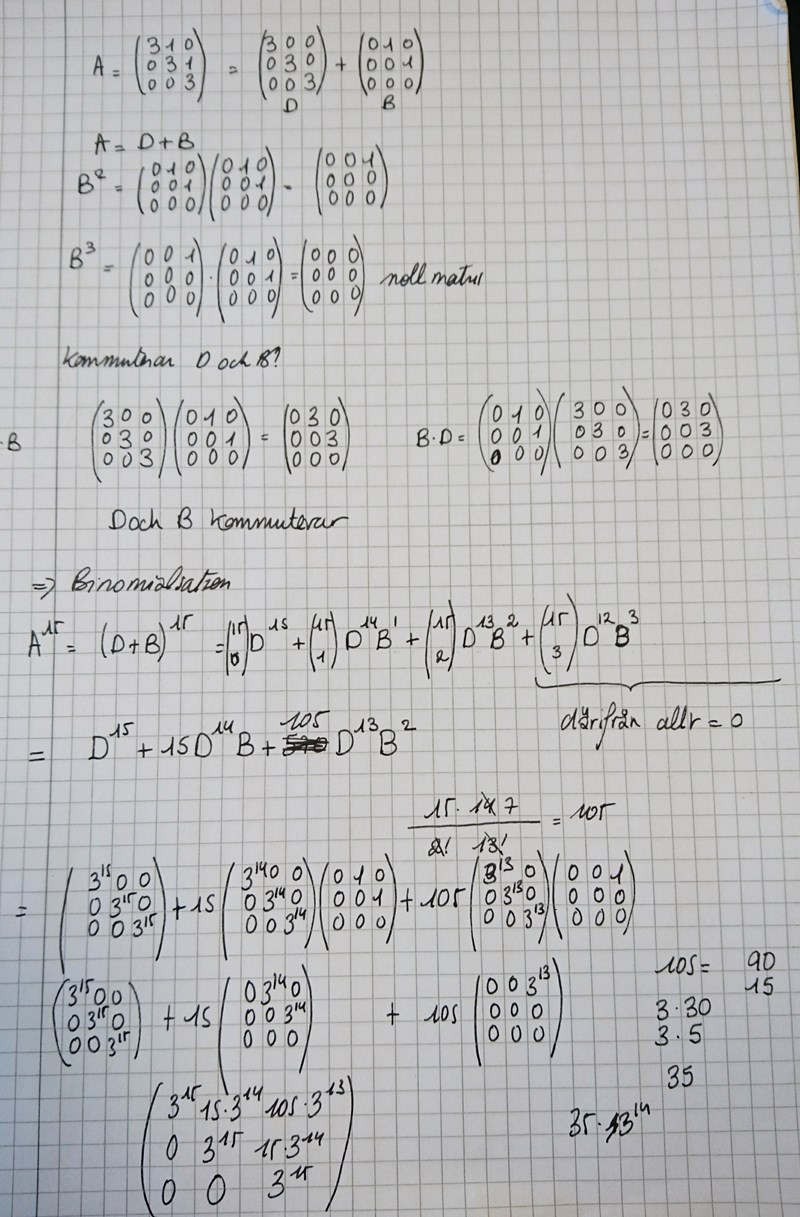 A = (3 1 0 / 0 3 1 / 0 0 3) = (3 0 0 / 0 3 0 / 0 0 3) + (0 1 0 / 0 0 1 / 0 0 0)
D B
A = D + B
B² = (0 1 0 / 0 0 1 / 0 0 0)(0 1 0 / 0 0 1 / 0 0 0) = (0 0 1 / 0 0 0 / 0 0 0)
B³ = (0 0 1 / 0 0 0 / 0 0 0) · (0 1 0 / 0 0 1 / 0 0 0) = (0 0 0 / 0 0 0 / 0 0 0) noll
Kommuterar D och B?
·B (3 0 0 / 0 3 0 / 0 0 3)(0 1 0 / 0 0 1 / 0 0 0) = (0 3 0 / 0 0 3 / 0 0 0) B·D = (0 1 0 / 0 0 1 / 0 0 0)(3 0 0 / 0 3 0 / 0 0 3) = (0 3 0 / 0 0 3 / 0 0 0)
D och B kommuterar
=> Binomialsatsen
A¹⁵ = (D+B)¹⁵ = (15 / 0)D¹⁵ + (15 / 1)D¹⁴B¹ + (15 / 2)D¹³B² + (15 / 3)D¹²B³
därifrån allt = 0
= D¹⁵ + 15D¹⁴B + 105 D¹³B²
15·14 7 / 2! 13! = 105
= (3¹⁵ 0 0 / 0 3¹⁵ 0 / 0 0 3¹⁵) + 15(3¹⁴ 0 0 / 0 3¹⁴ 0 / 0 0 3¹⁴)(0 1 0 / 0 0 1 / 0 0 0) + 105(3¹³ 0 / 0 3¹³ 0 / 0 0 3¹³)(0 0 1 / 0 0 0 / 0 0 0)
(3¹⁵ 0 0 / 0 3¹⁵ 0 / 0 0 3¹⁵) + 15(0 3¹⁴ 0 / 0 0 3¹⁴ / 0 0 0) + 105(0 0 3¹³ / 0 0 0 / 0 0 0)
105 = 90
15
3·30
3·5
35
(3¹⁵ 15·3¹⁴ 105·3¹³ / 0 3¹⁵ 15·3¹⁴ / 0 0 3¹⁵)
35·3¹⁴